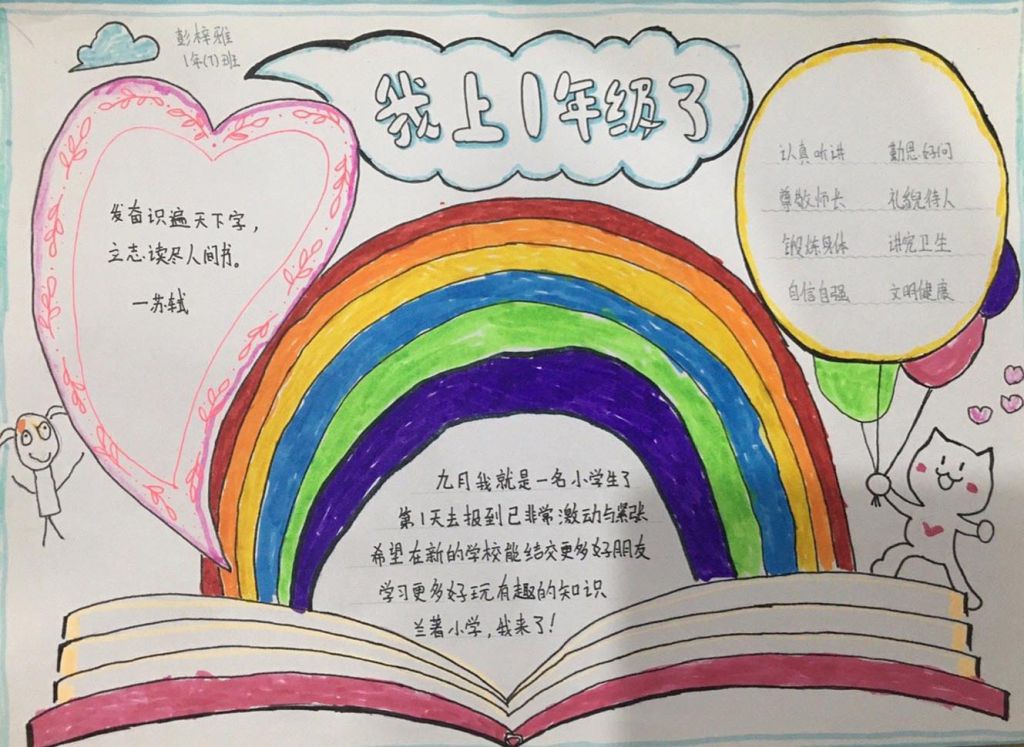 彭梓雅
1年(7)班
我上1年级了
发奋识遍天下字，
立志读尽人间书。
—苏轼
认真听讲 勤思好问
尊敬师长 礼貌待人
锻炼身体 讲究卫生
自信自强 文明健康
九月我就是一名小学生了
第1天去报到已非常激动与紧张
希望在新的学校能结交更多好朋友
学习更多好玩有趣的知识
兰著小学，我来了！